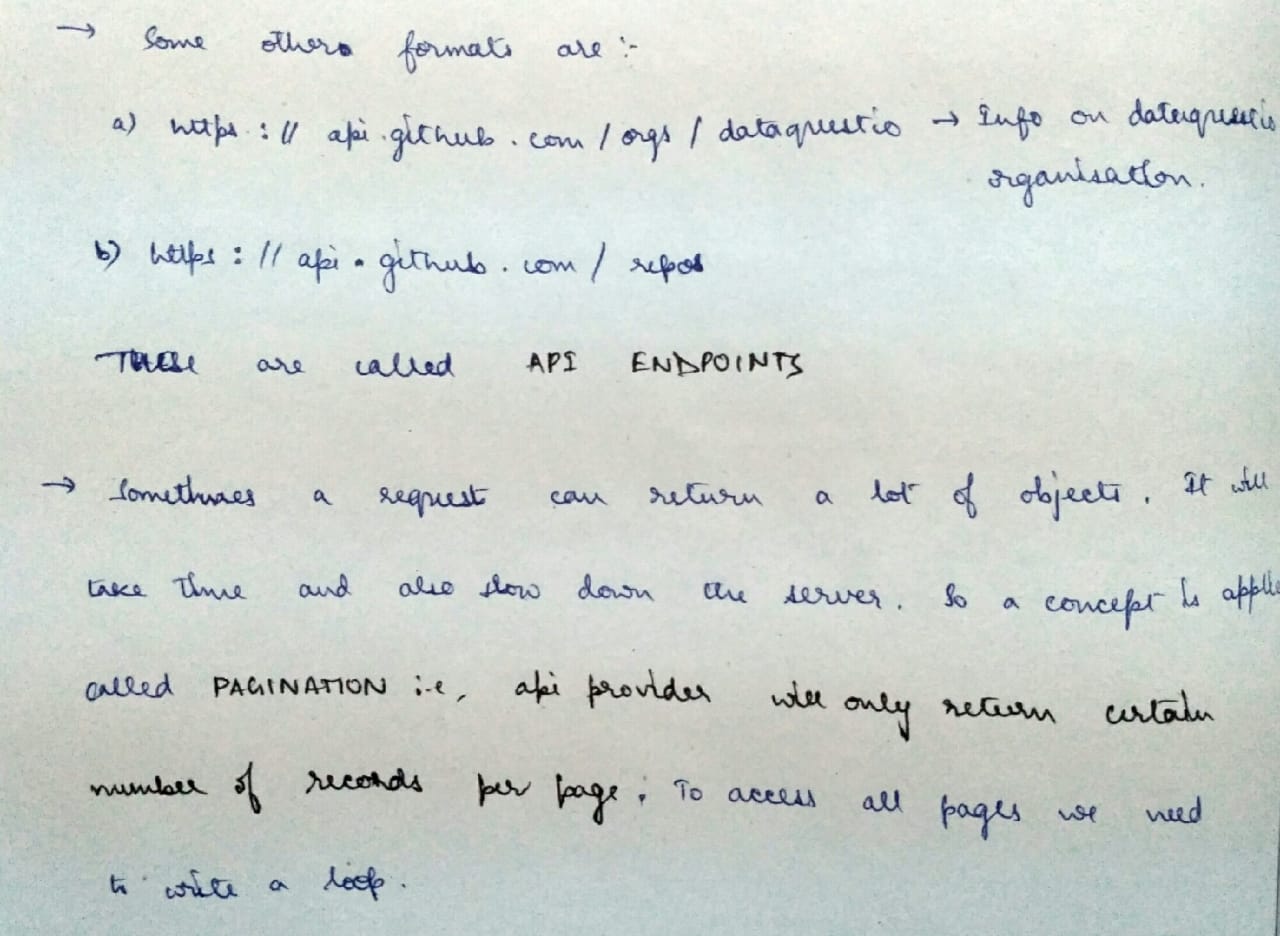 → Some others formats are :-
a) https : // api . github . com / orgs / dataquestio → Info on dataquestio
organisation.
b) https : // api . github . com / repos
These are called API ENDPOINTS
→ Sometimes a request can return a lot of objects. It will
take time and also slow down the server. So a concept is applie
called PAGINATION i.e, api provider will only return certain
number of records per page. To access all pages we need
to write a loop.